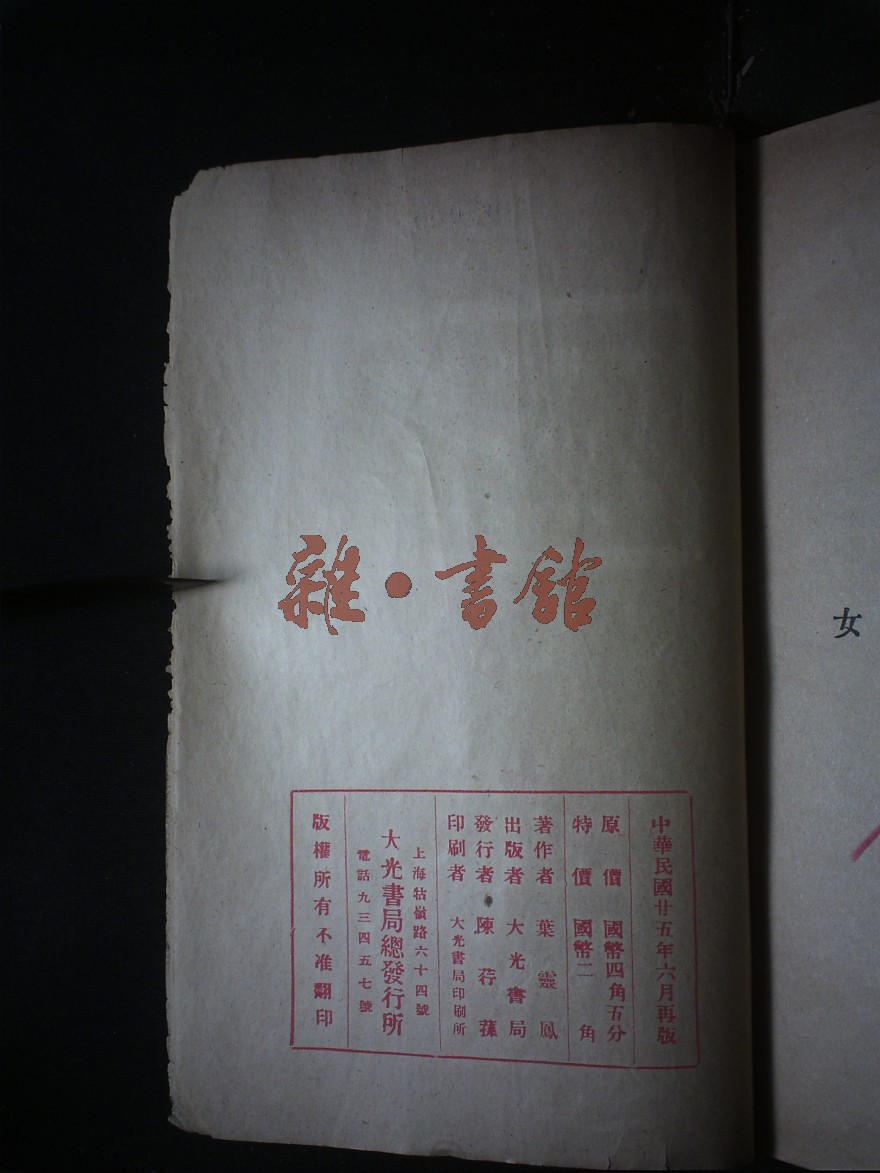 女
雜·書館
中華民國廿五年六月再版
原價 國幣四角五分
特價 國幣二角
著作者 葉靈鳳
出版者 大光書局
發行者 陳荇蓀
印刷者 大光書局印刷所
上海牯嶺路六十四號
大光書局總發行所
電話九三四五七號
版權所有不准翻印